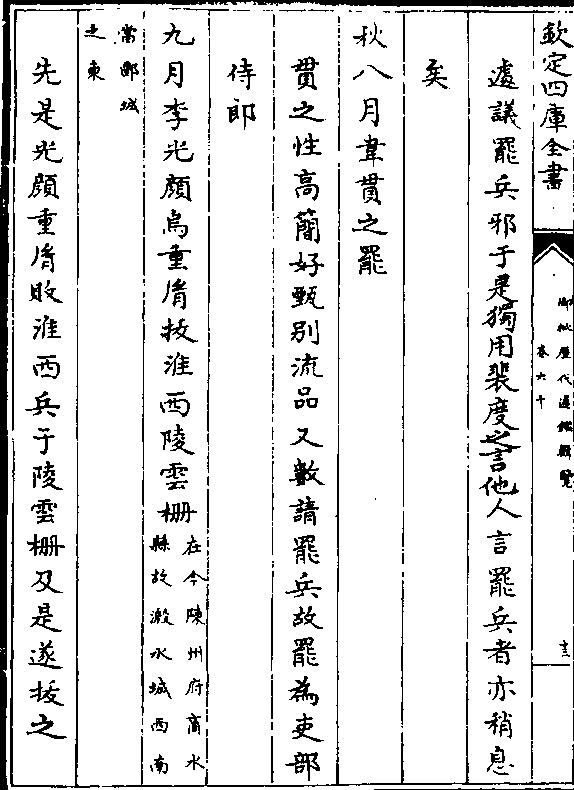 欽定四庫全書
御批歷代通鑑輯覽
卷六十
遽議罷兵邪于是獨用裴度之言他人言罷兵者亦稍息
矣
秋八月韋貫之罷
貫之性高簡好甄別流品又數請罷兵故罷為吏部
侍郎
九月李光顏烏重𦙍拔淮西陵雲柵在今陳州府商水
縣故溵水城西南
當郾城
之東
先是光顏重𦙍敗淮西兵于陵雲柵及是遂拔之